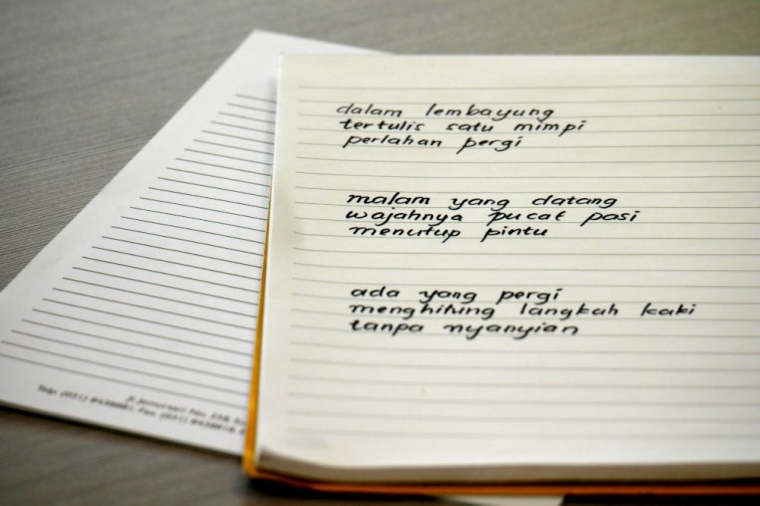 dalam lembayung
tertulis satu mimpi
perlahan pergi
malam yang datang
wajahnya pucat pasi
menutup pintu
ada yang pergi
menghitung langkah kaki
tanpa nyanyian
Jl. Jemursari No.
Telp. (031) Fax. (031)